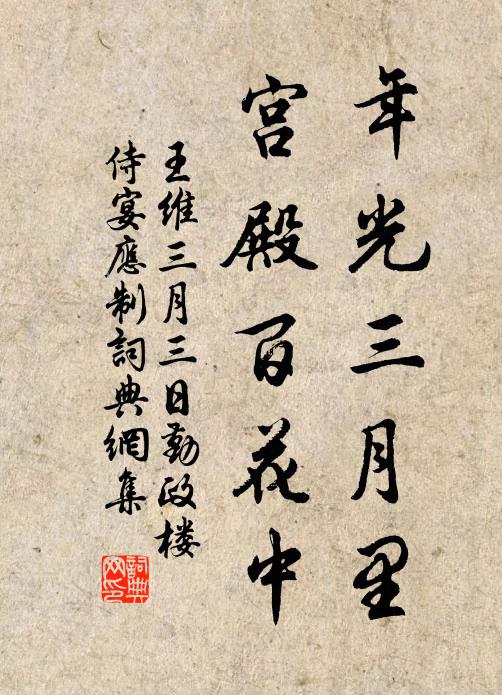 年光三月里
宫殿百花中
王维三月三日勤政楼
侍宴應制詞典網集
詞典网印